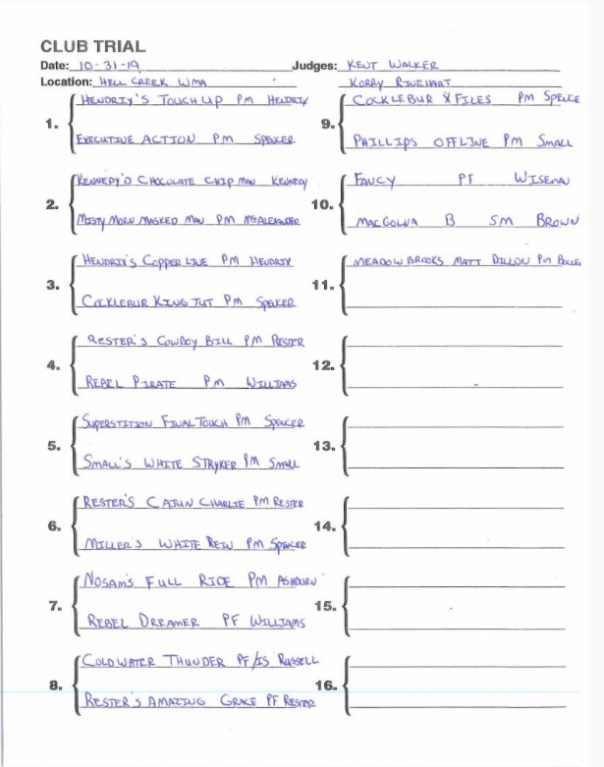 CLUB TRIAL
Date: 10-31-19 Judges: KENT WALKER
Location: HELL CREEK WMA KORRY RINEHART
1. HENDRIX'S TOUCH UP PM HENDRIX
EXECUTIVE ACTION PM SPENCER
2. KENNEDY'S CHOCOLATE CHIP MAN KENNEDY
MISTY MORN MASKED MAN PM MCALEXANDER
3. HENDRIX'S COPPER LINE PM HENDRIX
COCKLEBUR KING TUT PM SPENCER
4. RESTER'S COWBOY BILL PM RESTER
REBEL PIRATE PM WILLIAMS
5. SUPERSTITION FINAL TOUCH PM SPENCER
SMALL'S WHITE STRYKER PM SMALL
6. RESTER'S CAJUN CHARLIE PM RESTER
MILLER'S WHITE REIN PM SPENCER
7. NOSAM'S FULL RIDE PM ASHBURN
REBEL DREAMER PF WILLIAMS
8. COLDWATER THUNDER PF/IS RUSSELL
RESTER'S AMAZING GRACE PF RESTER
9. COCKLEBUR X FILES PM SPENCE
PHILLIPS OFFLINE PM SMALL
10. FANCY PF WISEMAN
MACGOLVA B SM BROWN
11. MEADOWBROOKS MATT DILLON PM
12.
13.
14.
15.
16.